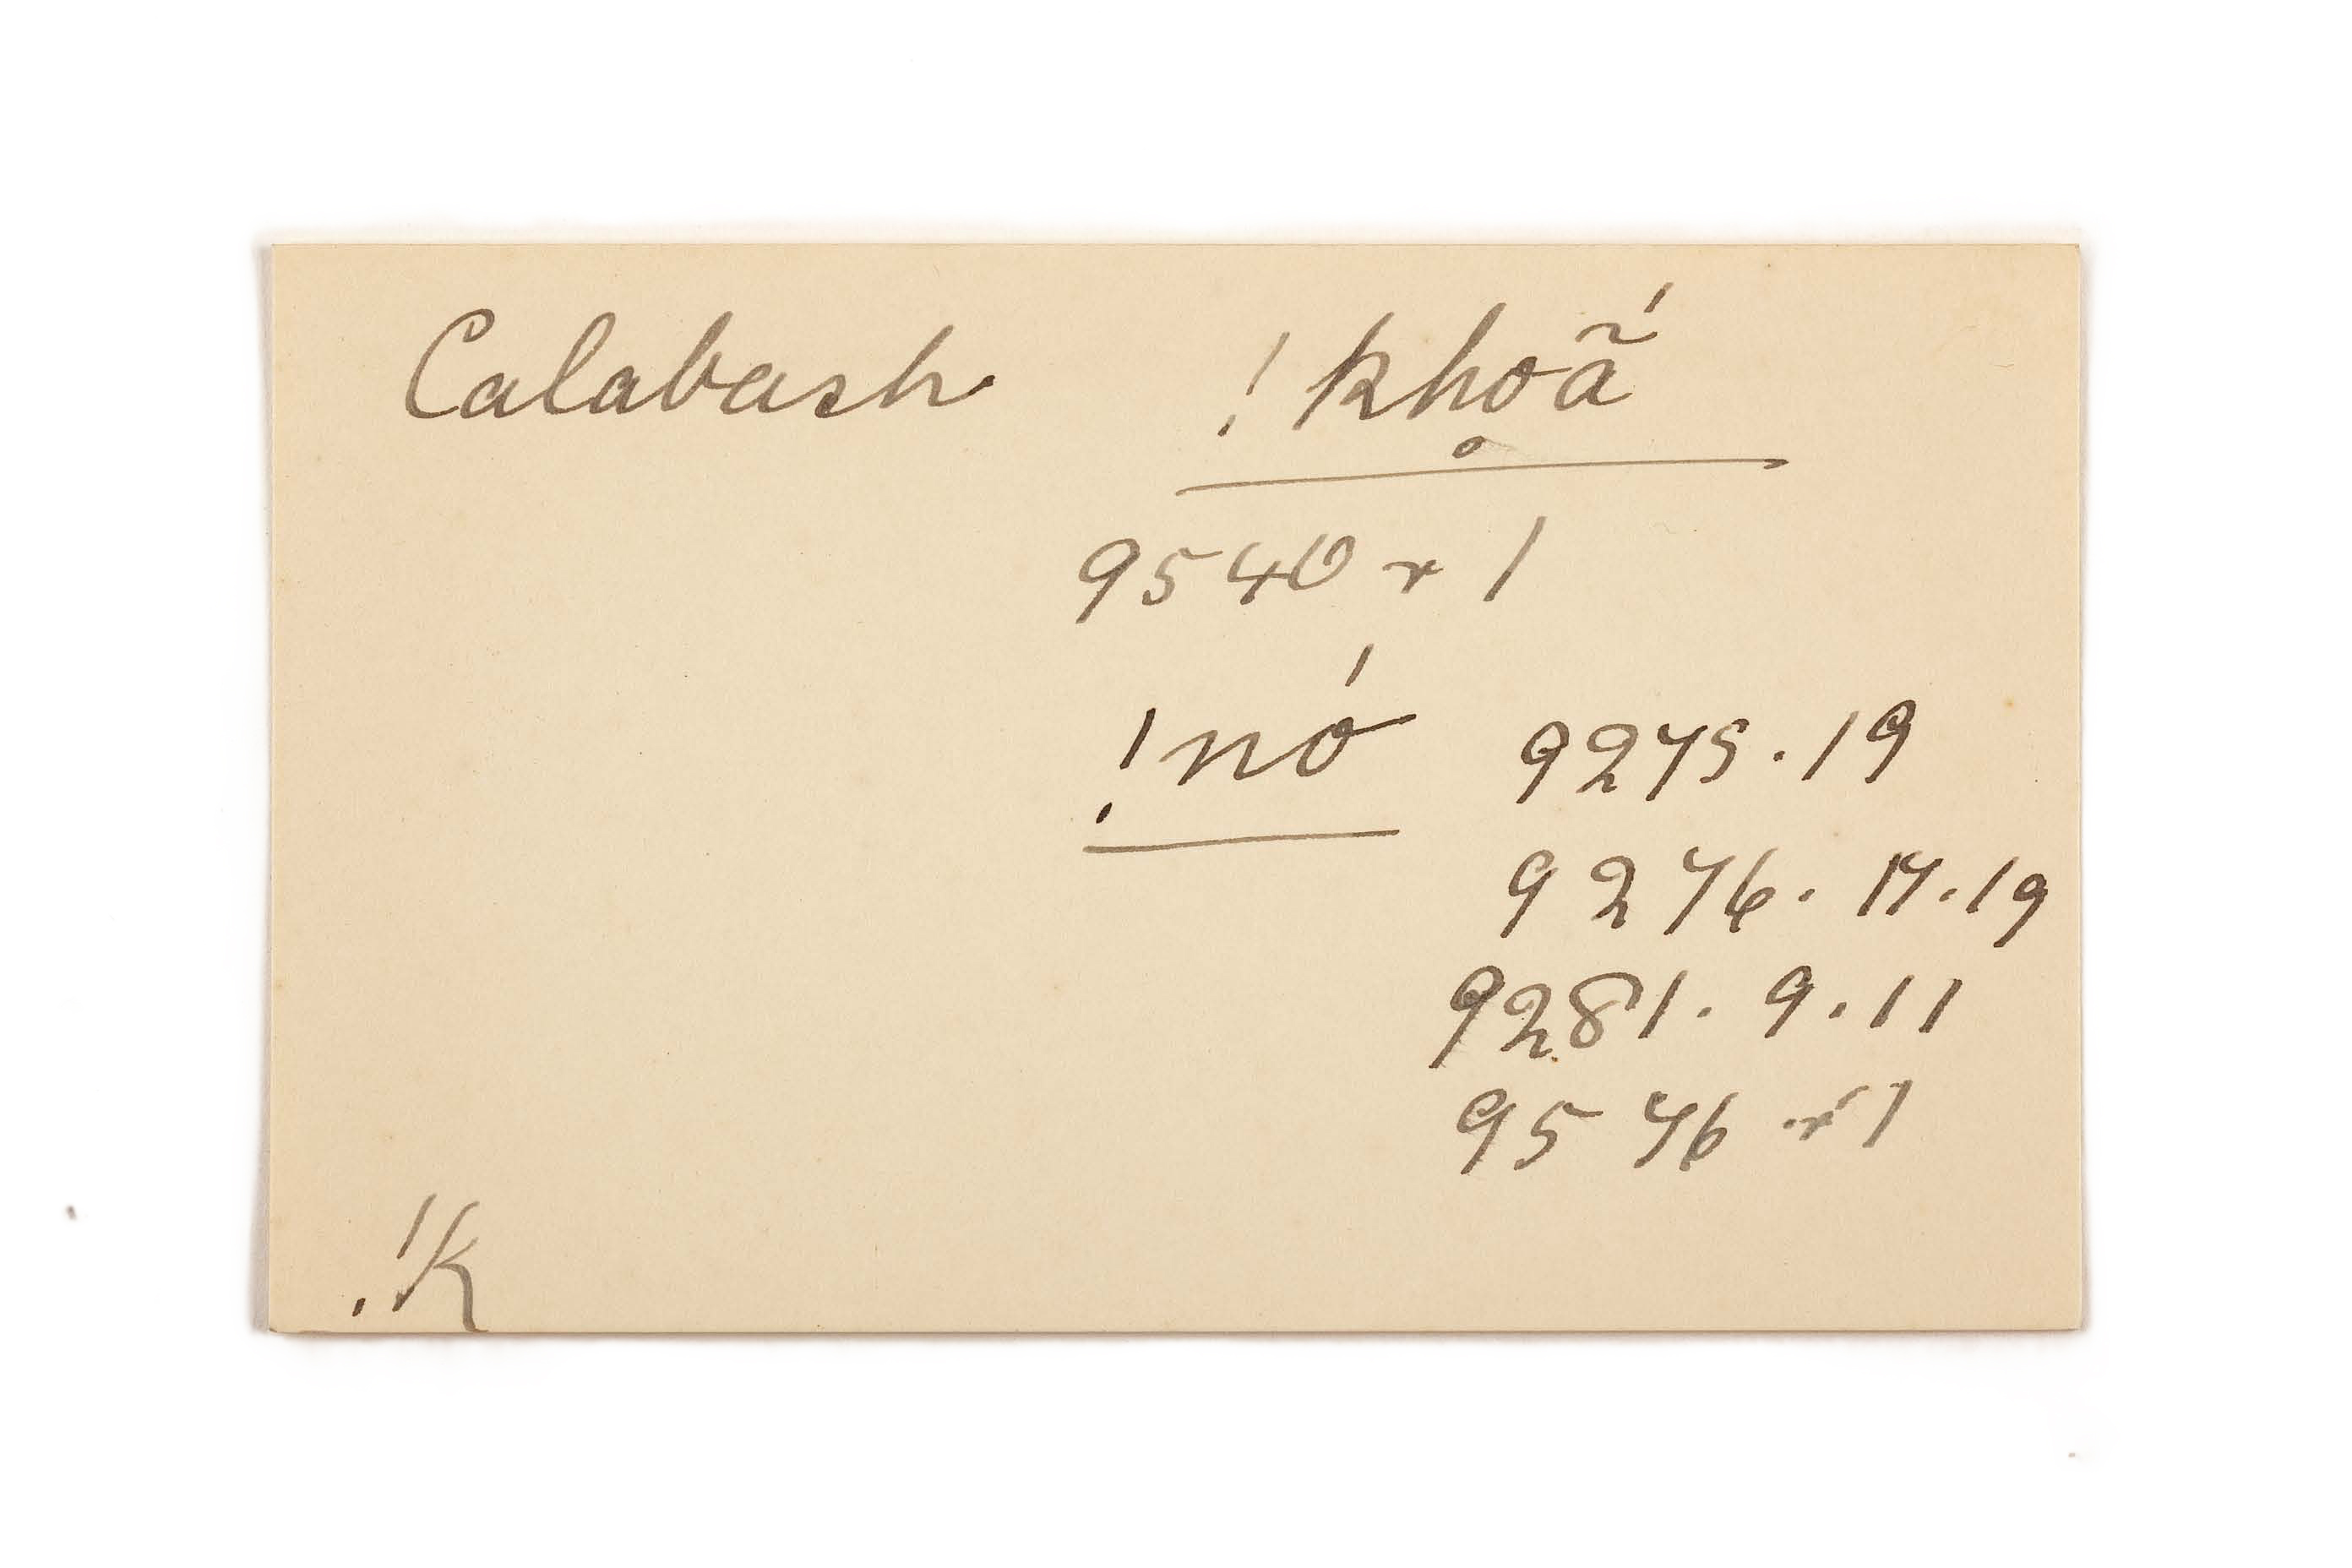 Calabash !kho̥ã́
9540 r 1
!nó 9275.19
9276. 17.19
9281. 9.11
9576 r 1
!K